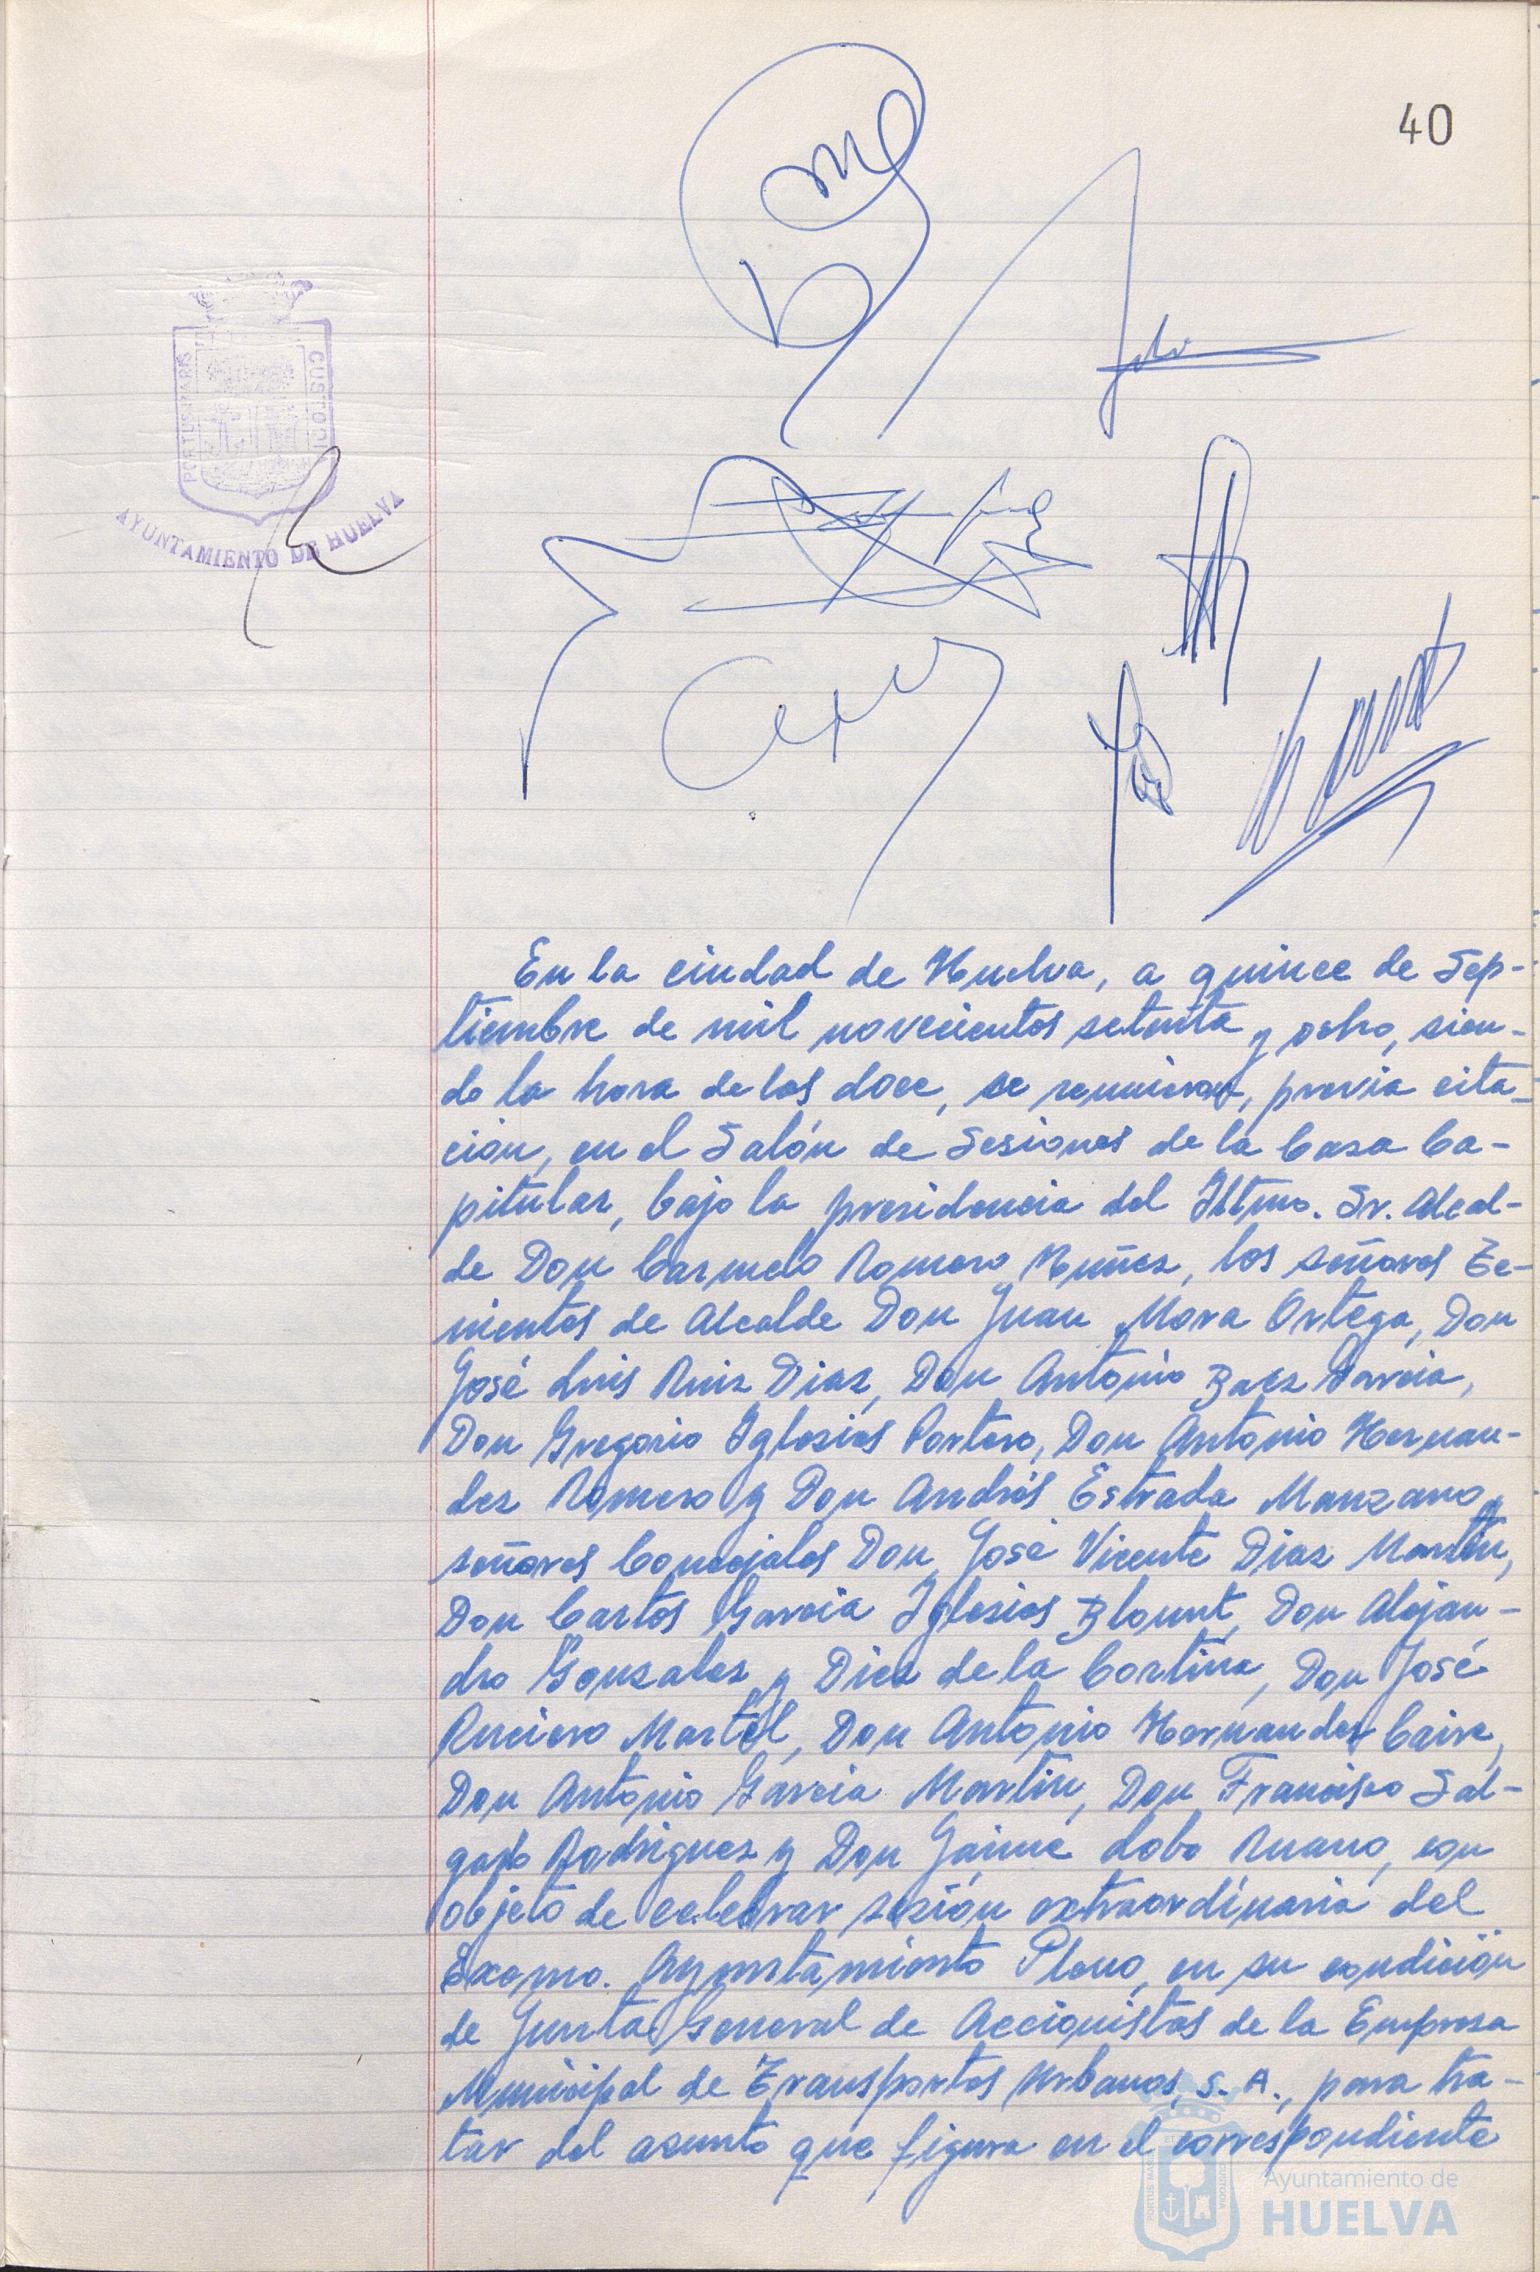 40
PORTUS MARIS
CUSTODIA
AYUNTAMIENTO DE HUELVA
En la ciudad de Huelva, a quince de Sep-
tiembre de mil novecientos setenta y ocho, sien-
do la hora de las doce, se reunieron, previa cita-
ción, en el Salón de Sesiones de la Casa Ca-
pitular, bajo la presidencia del Iltmo. Sr. Alcal-
de Don Carmelo Romero Nuñez, los señores Te-
nientes de Alcalde Don Juan Mora Ortega, Don
José Luis Ruiz Diaz, Don Antonio Baez Garcia,
Don Gregorio Iglesias Portero, Don Antonio Hernan-
dez Romero y Don Andrés Estrada Manzano y
señores Concejales Don José Vicente Diaz Martin,
Don Carlos Garcia Iglesias Blount, Don Alejan-
dro Gonzalez y Diez de la Cortina, Don José
Ruciero Martel, Don Antonio Hernandez Caire,
Don Antonio Garcia Martin, Don Francisco Sal-
gado Rodriguez y Don Jaime Lobo Ruano, con
objeto de celebrar sesión extraordinaria del
Excmo. Ayuntamiento Pleno, en su condición
de Junta General de Accionistas de la Empresa
Municipal de Transportes Urbanos, S. A., para tra-
tar del asunto que figura en el correspondiente
PORTUS MARIS
CUSTODIA
Ayuntamiento de
HUELVA